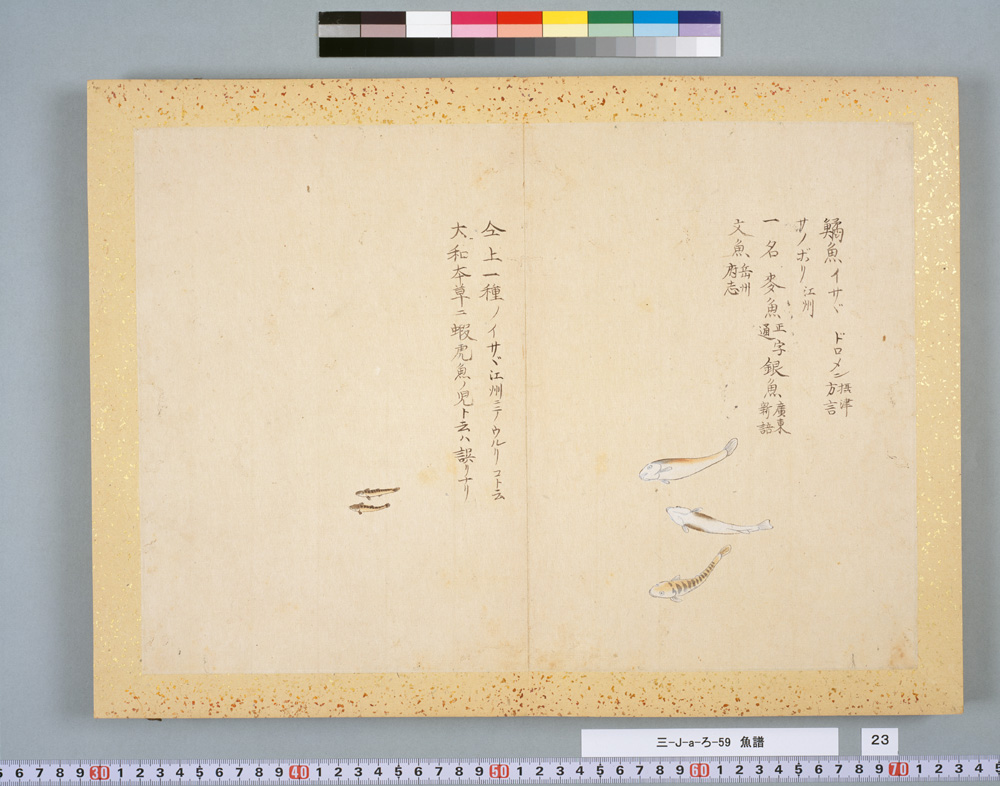 鱊魚 イサヾ ドロメン 摂津方言
サノボリ 江州
一名 麥魚 正字通 銀魚 廣東新語
文魚 岳州府志
仝上一種ノイサヾ江州ニテウルリコト云
大和本草ニ蝦虎魚ノ児ト云ハ誤リナリ
三-J-a-ろ-59 魚譜
23
6 7 8 9 30 1 2 3 4 5 6 7 8 9 40 1 2 3 4 5 6 7 8 9 50 1 2 3 4 5 6 7 8 9 60 1 2 3 4 5 6 7 8 9 70 1 2 3 4